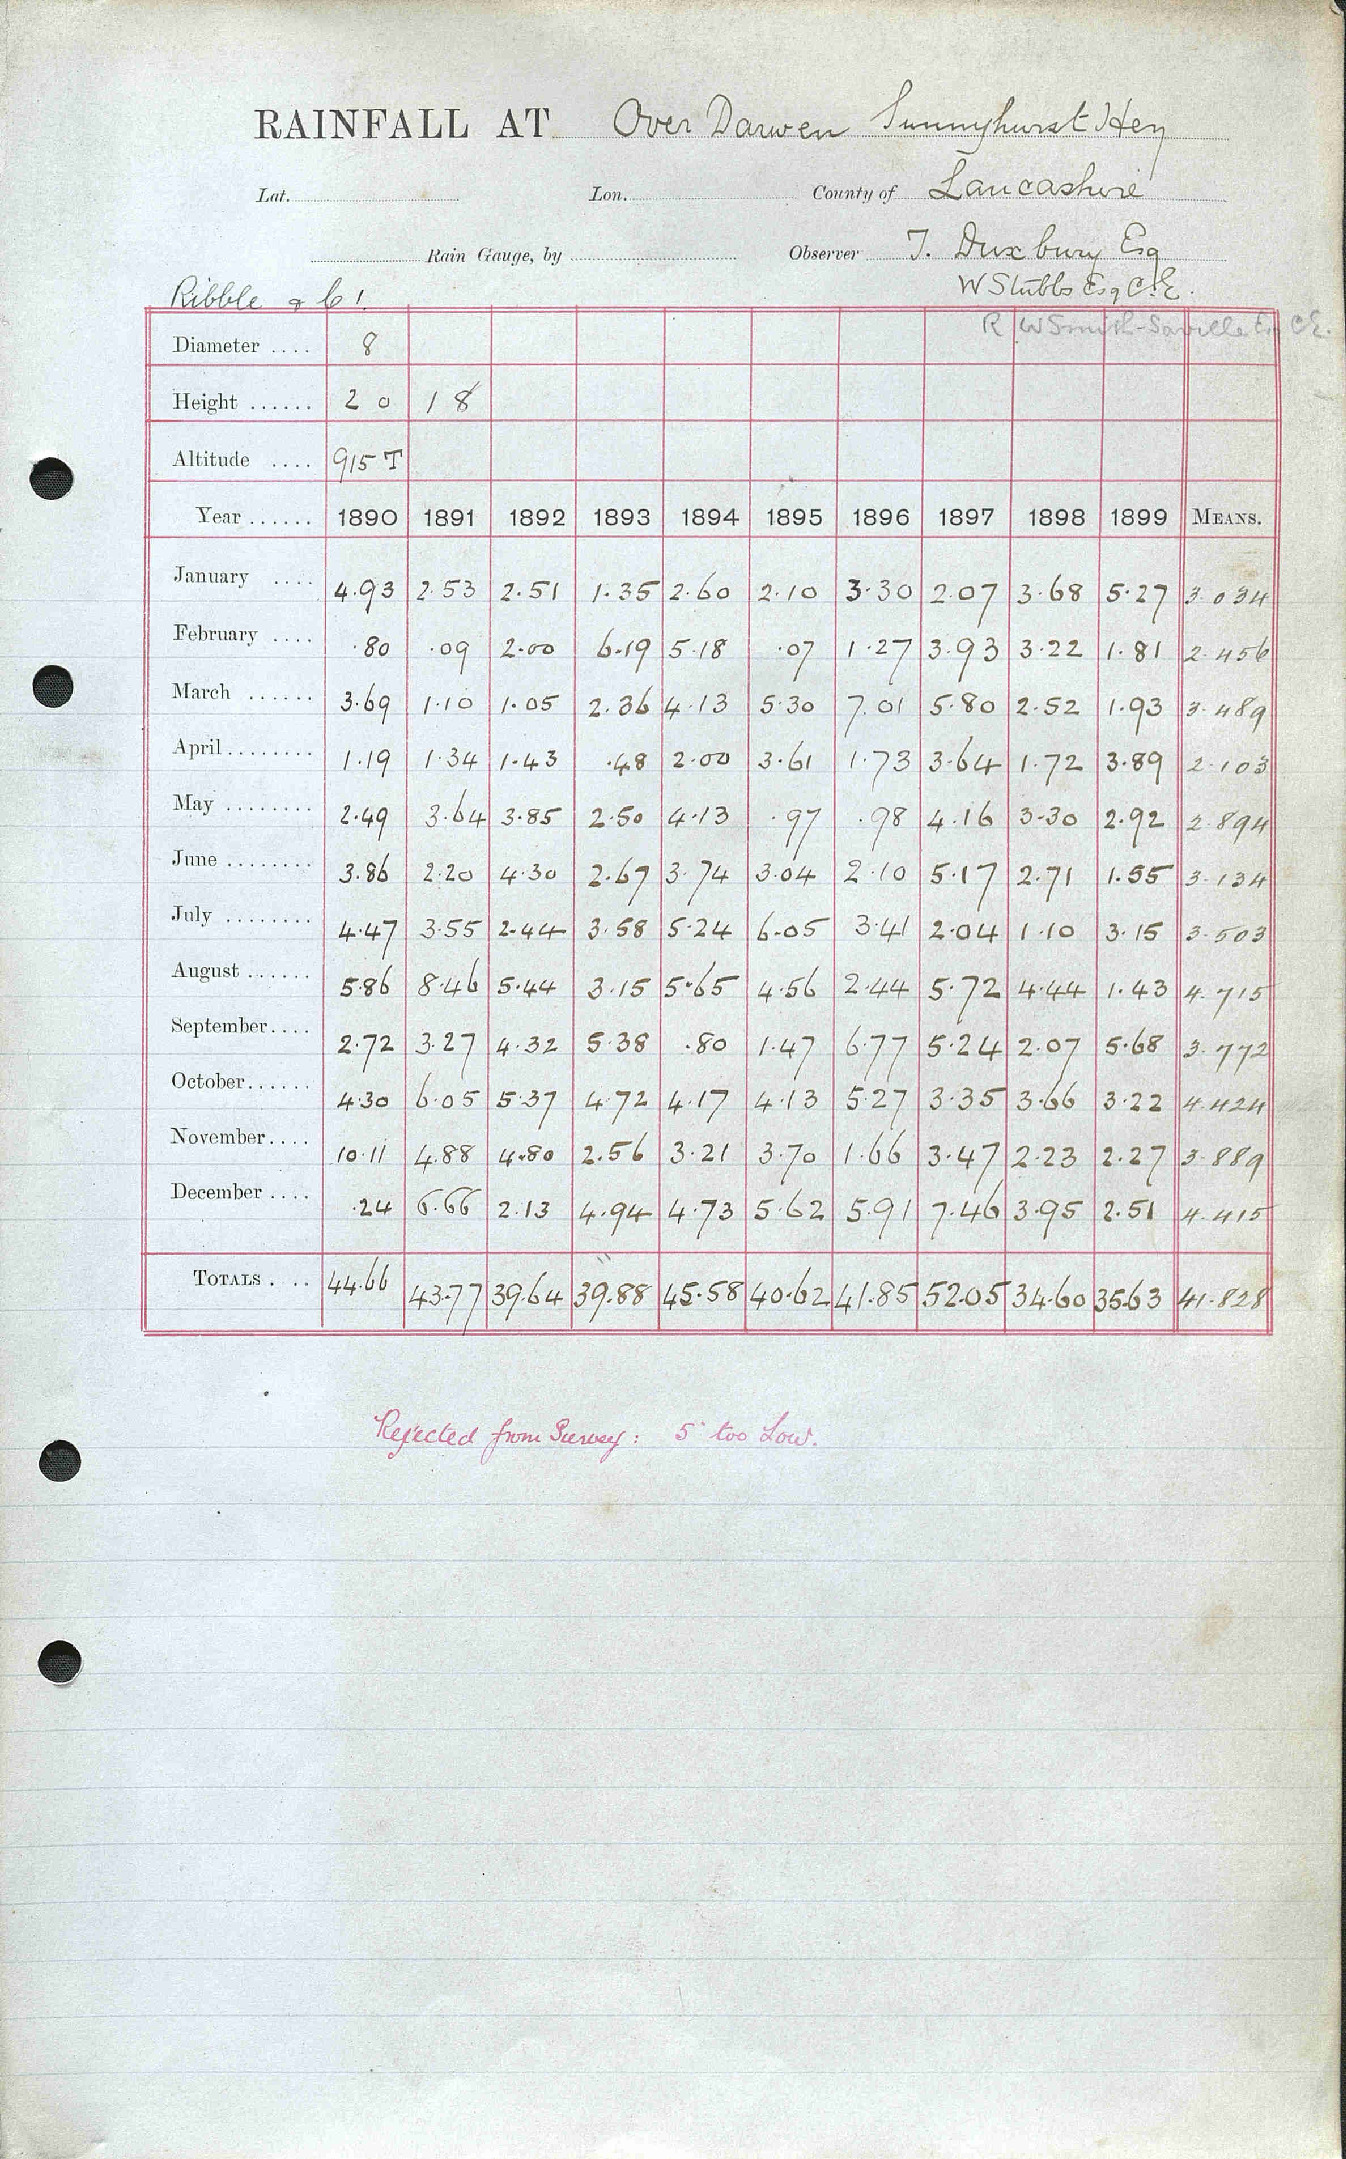 RAINFALL AT Over Darwen Sunnyhurst Hey
Lat. Lon. County of Lancashire
Rain Gauge, by Observer T. Duxbury Esq
Ribble & C1. W Stubbs Esq C.E.
R W Smith-Saville Esq C.E.
Diameter .... 8
Height ...... 2 0 1 8
Altitude .... 915 T
Year ...... 1890 1891 1892 1893 1894 1895 1896 1897 1898 1899 MEANS.
January .... 4.93 2.53 2.51 1.35 2.60 2.10 3.30 2.07 3.68 5.27 3.034
February .... .80 .09 2.00 6.19 5.18 .07 1.27 3.93 3.22 1.81 2.456
March ...... 3.69 1.10 1.05 2.36 4.13 5.30 7.01 5.80 2.52 1.93 3.489
April ........ 1.19 1.34 1.43 .48 2.00 3.61 1.73 3.64 1.72 3.89 2.103
May ........ 2.49 3.64 3.85 2.50 4.13 .97 .98 4.16 3.30 2.92 2.894
June ........ 3.86 2.20 4.30 2.67 3.74 3.04 2.10 5.17 2.71 1.55 3.134
July ........ 4.47 3.55 2.44 3.58 5.24 6.05 3.41 2.04 1.10 3.15 3.503
August ...... 5.86 8.46 5.44 3.15 5.65 4.56 2.44 5.72 4.44 1.43 4.715
September.... 2.72 3.27 4.32 5.38 .80 1.47 6.77 5.24 2.07 5.68 3.772
October...... 4.30 6.05 5.37 4.72 4.17 4.13 5.27 3.35 3.66 3.22 4.424
November.... 10.11 4.88 4.80 2.56 3.21 3.70 1.66 3.47 2.23 2.27 3.889
December .... .24 6.66 2.13 4.94 4.73 5.62 5.91 7.46 3.95 2.51 4.415
TOTALS .... 44.66 43.77 39.64 39.88 45.58 40.62 41.85 52.05 34.60 35.63 41.828
Rejected from Survey: 5" too Low.